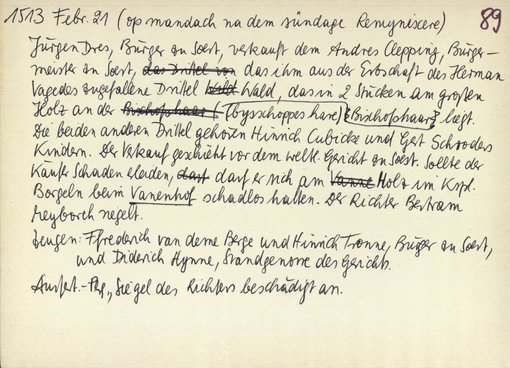 1513 Febr. 21 (op mandach na dem sundage Remyniscere) 89
Jürgen Dres, Bürger zu Soest, verkauft dem Andres Clepping, Bürger-
meister zu Soest, das Drittel von das ihm aus der Erbschaft des Herman
Vagedes zugefallene Drittel Wald Wald, das in 2 Stücken am großen
Holz an der Bischofshaar ( (bysschoppes hare) {Bischofshaar} liegt.
Die beiden anderen Drittel gehören Hinrich Cubicke und Gert Schroders
Kindern. Der Verkauf geschieht vor dem weltl. Gericht zu Soest. Sollte der
Käufer Schaden erleiden, darf darf er sich am Vanne Holz im Kspl.
Borgeln beim Vanenhof schadlos halten. Der Richter Bertram
Meyborch siegelt.
Zeugen: Ffrederich van deme Berge und Hinrich Tronne, Bürger zu Soest,
und Diderich Hynne, Standgenosse des Gerichts.
Ausfert.-Perg., Siegel des Richters beschädigt an.